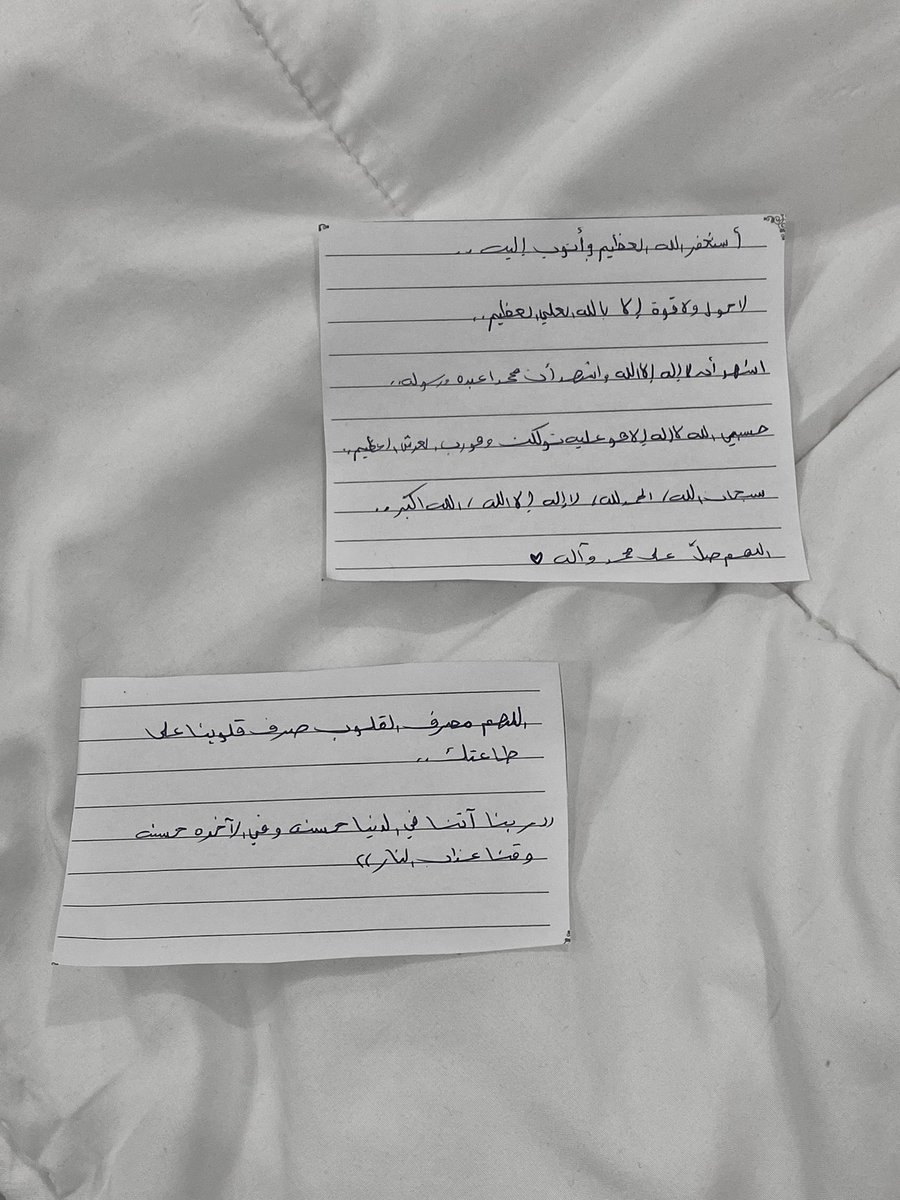 أستغفر الله العظيم وأتوب إليه ..
لا حول ولا قوة إلا بالله العلي العظيم ..
اشهد أن لا إله إلا الله واشهد أن محمدا عبده ورسوله ..
حسبي الله لا إله إلا هو عليه توكلت وهو رب العرش العظيم ..
سبحان الله / الحمد لله / لا إله إلا الله / الله اكبر ..
اللهم صلّ على محمد وآله ♥
اللهم مصرف القلوب صرف قلوبنا على
طاعتك ..
((ربنا آتنا في الدنيا حسنه وفي الآخره حسنه
وقنا عذاب النار))